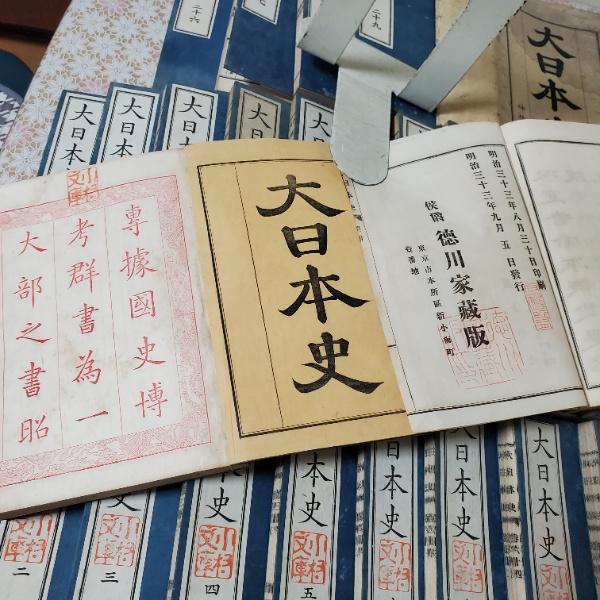 三十六
七
三十九
大日本
大日本
大日本
大日本
大日本
大日本史
專據國史博
考群書為一
大部之書昭
大日本史
明治三十三年八月三十日印刷
明治三十三年九月五日發行
侯爵 德川家藏版
東京市本所區新小梅町
壹番地
史
二
史
三
大日本史
四
日本史
五
大日本史
大日本史
大日本史